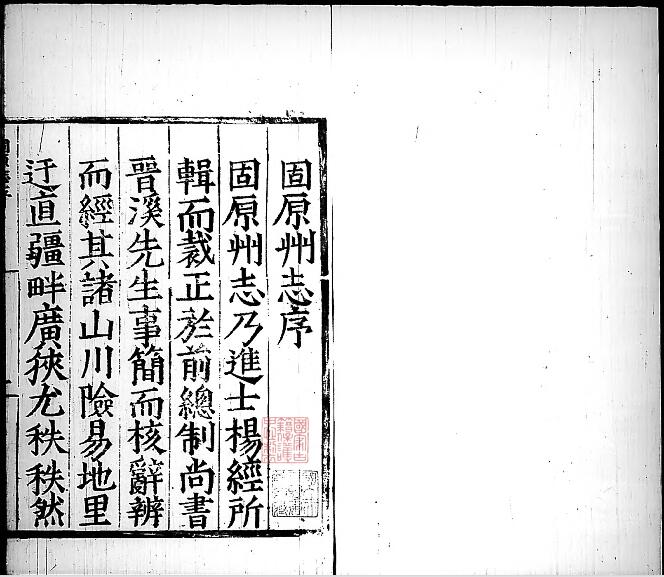 固原州志序
固原州志乃進士楊經所
輯而裁正於前總制尚書
晉溪先生事簡而核辭辨
而經其諸山川險易地里
迂直疆畔廣狹尤秩秩然